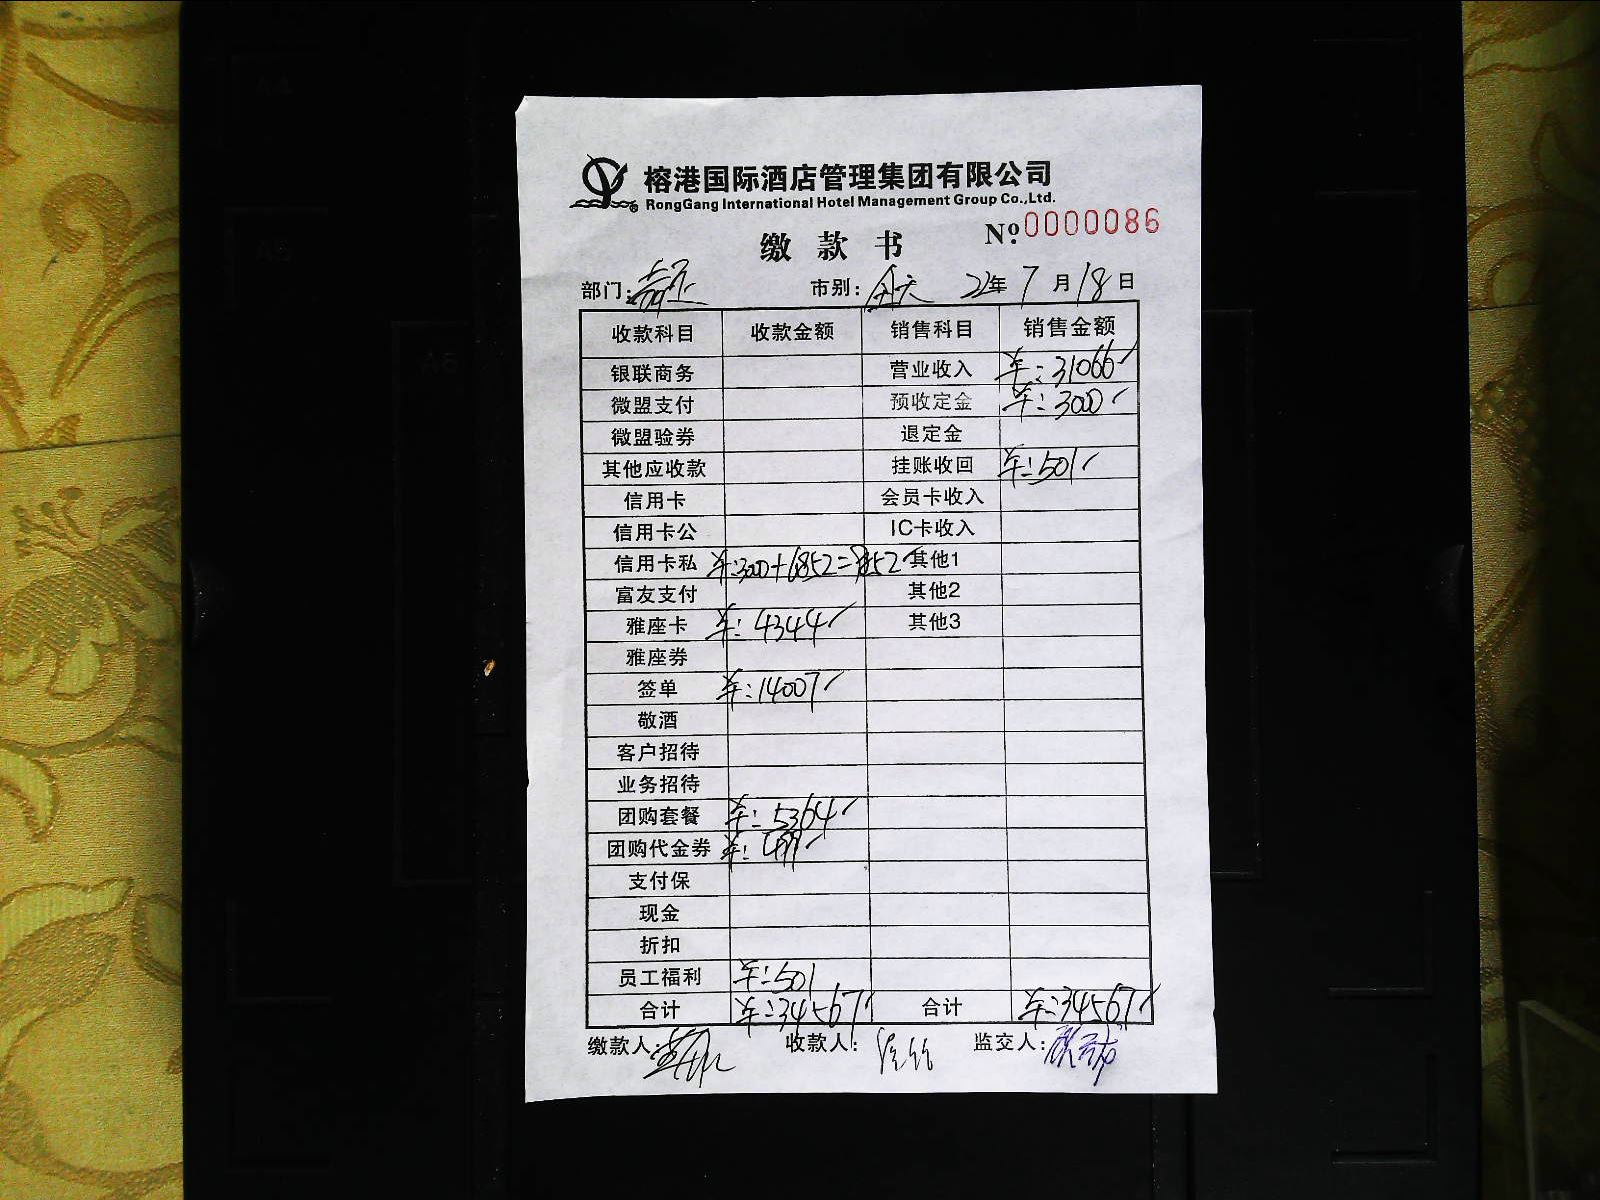 榕港国际酒店管理集团有限公司
RongGang International Hotel Management Group Co.,Ltd.
缴款书 № 0000086
部门： 市别：全天 22年7月18日
收款科目 收款金额 销售科目 销售金额
银联商务 营业收入 ¥：31066
微盟支付 预收定金 ¥：3000
微盟验券 退定金
其他应收款 挂账收回 ¥：501
信用卡 会员卡收入
信用卡公 IC卡收入
信用卡私 ¥：3000+6852=9852 其他1
富友支付 其他2
雅座卡 ¥：4344 其他3
雅座券
签单 ¥：14007
敬酒
客户招待
业务招待
团购套餐 ¥：5364
团购代金券 ¥：
支付保
现金
折扣
员工福利 ¥：501
合计 ¥：34567 合计 ¥：34567
缴款人： 收款人： 监交人：